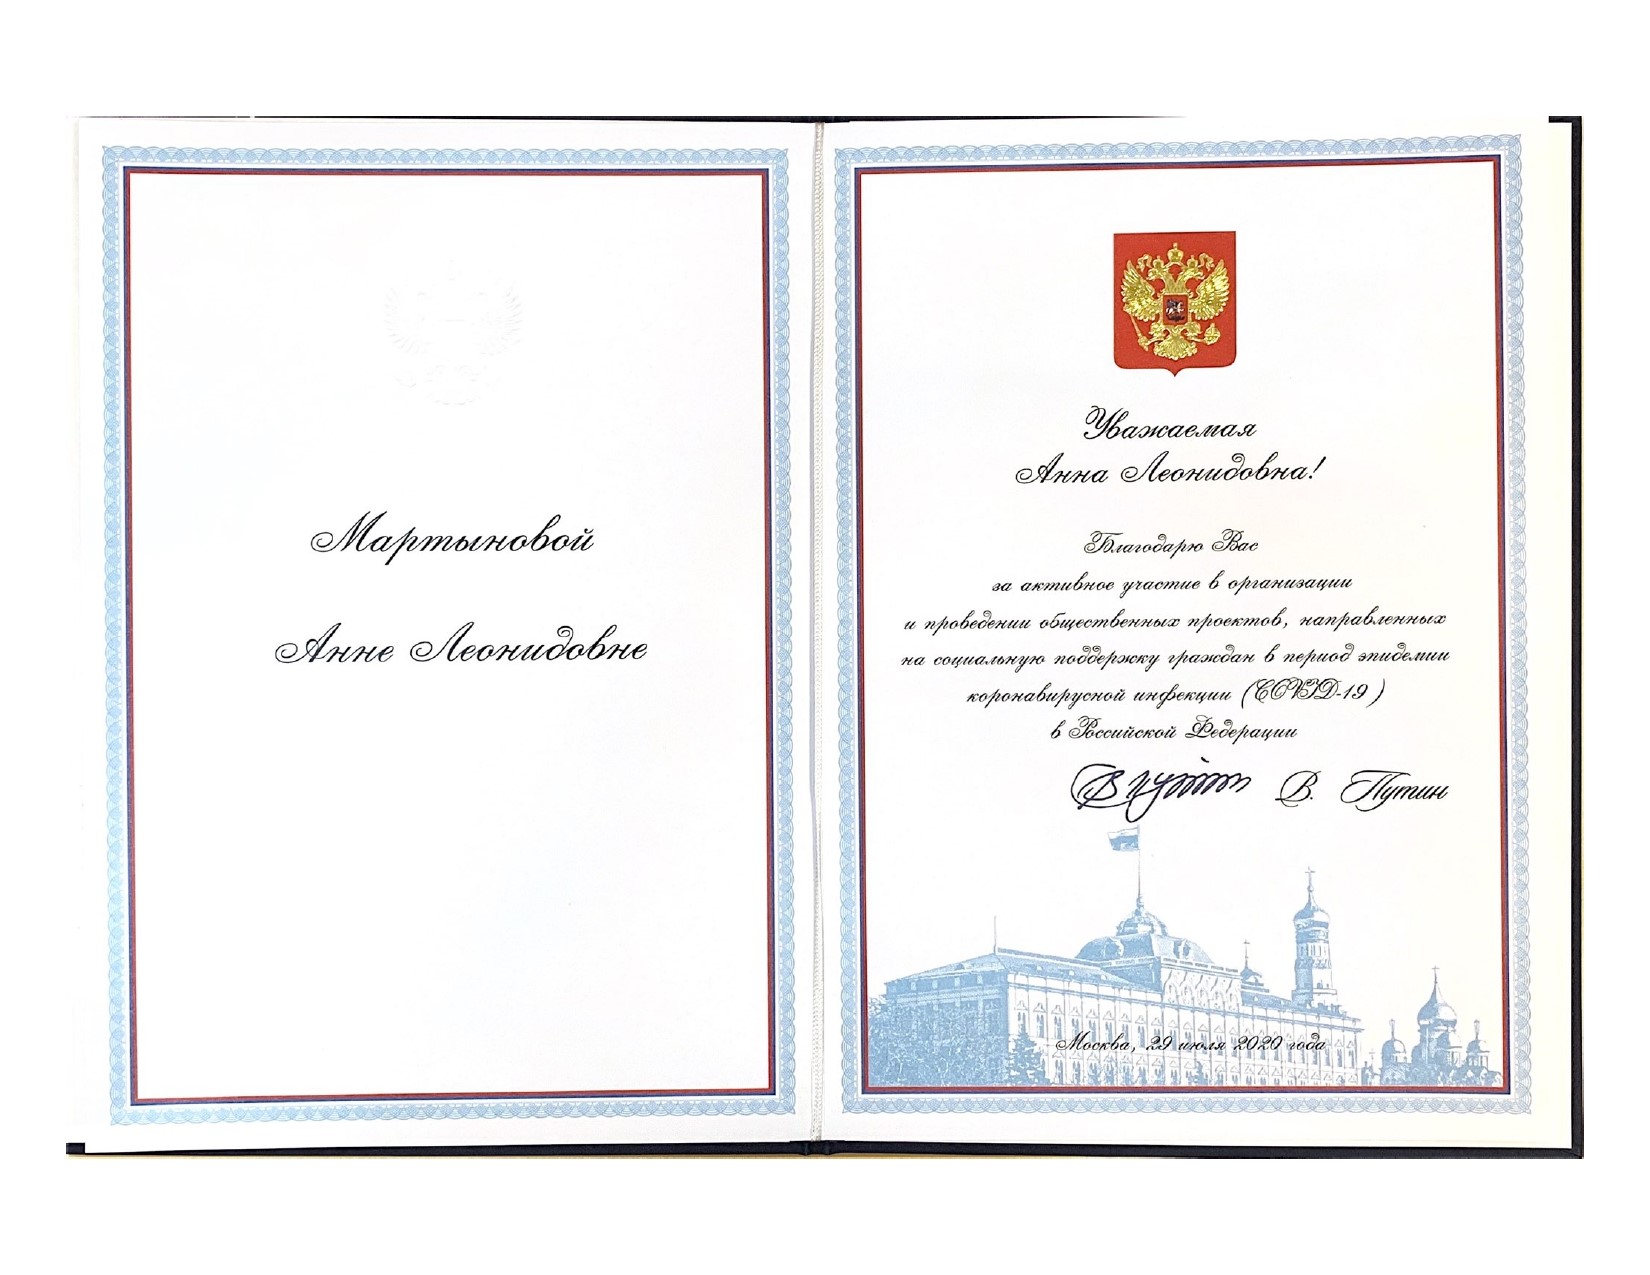 Мартыновой
Анне Леонидовне
Уважаемая
Анна Леонидовна!
Благодарю Вас
за активное участие в организации
и проведении общественных проектов, направленных
на социальную поддержку граждан в период эпидемии
коронавирусной инфекции (COVID-19)
в Российской Федерации
В. Путин
Москва, 29 июля 2020 года